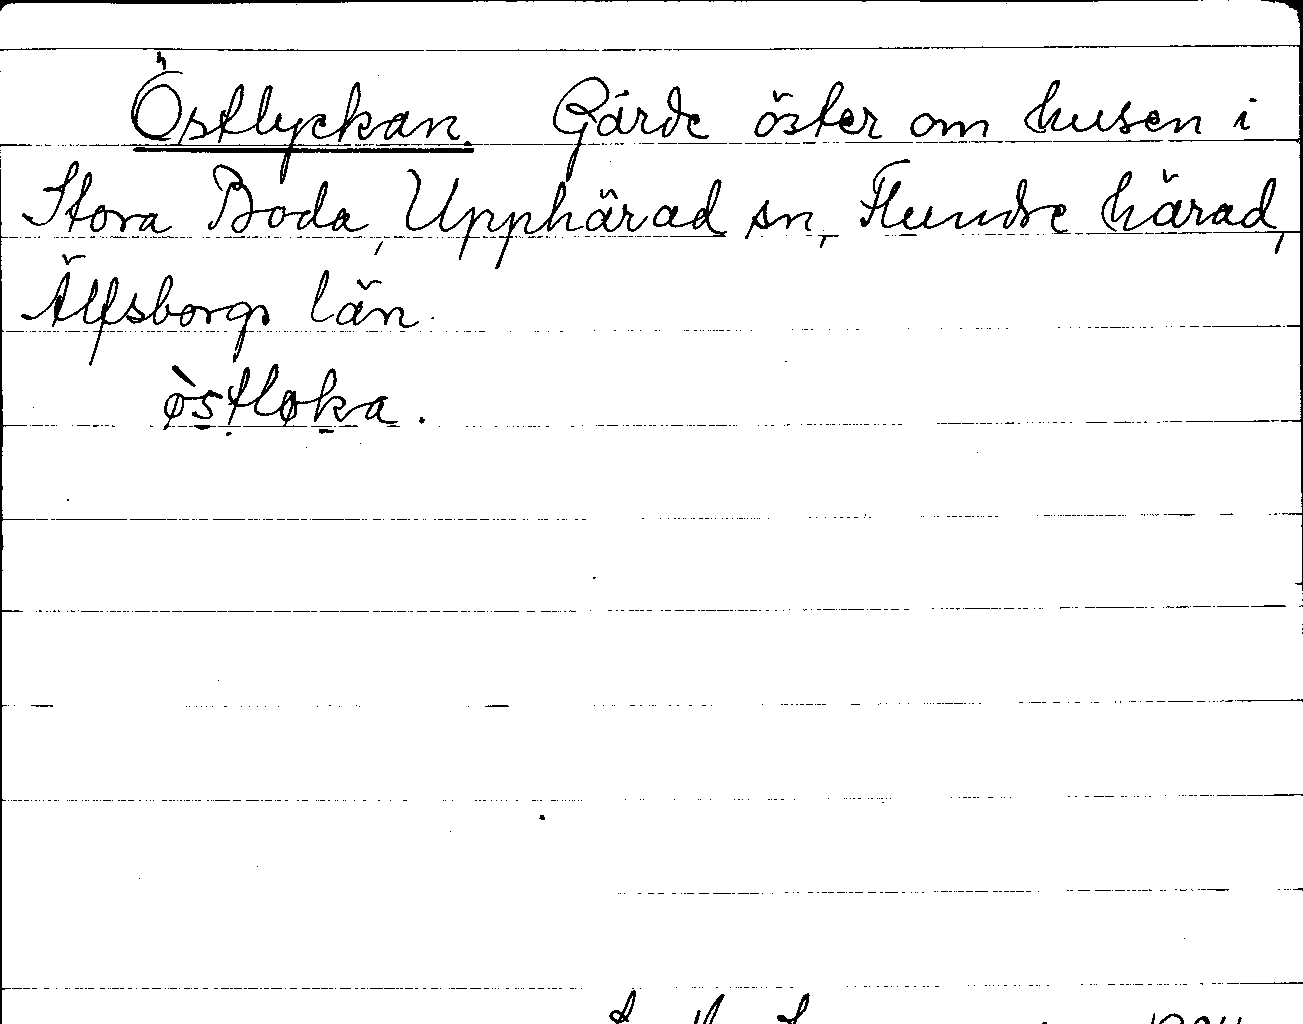 Östlyckan. Gärde öster om husen i
Stora Boda, Upphärad sn, Flundre härad,
Älfsborgs län.
östløka.